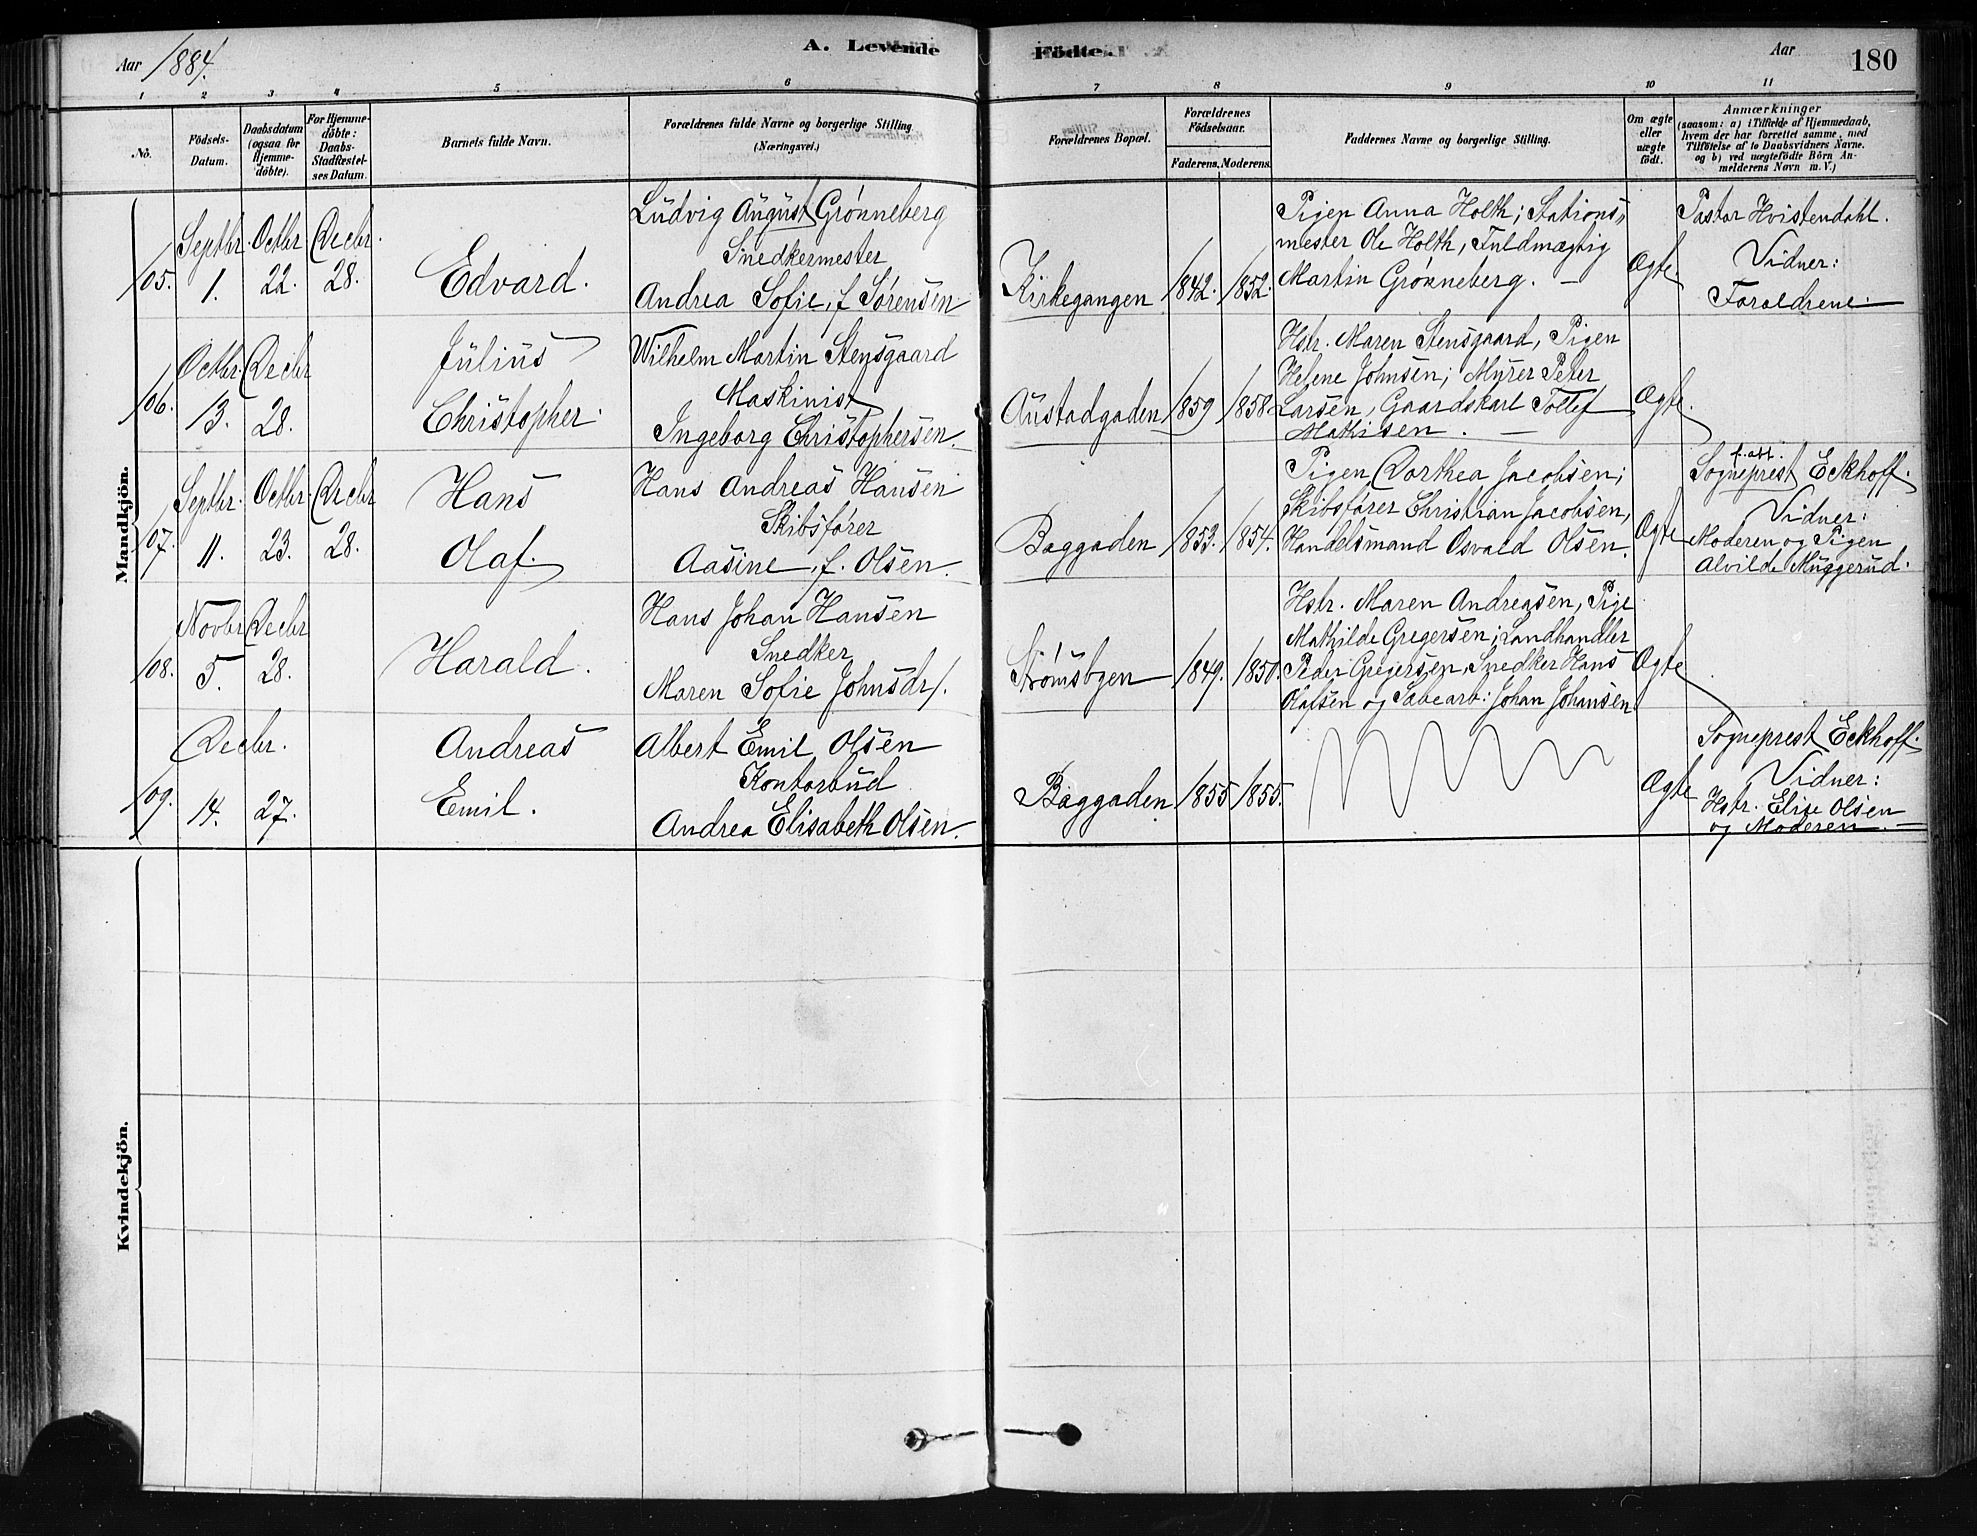 Aar 1884.
A. Levende
Fødte.
Aar
180
1 2 3 4 5 6 7 8 9 10 11
No.
Födsels-
Datum.
Daabsdatum
(ogsaa for
Hjemme-
døbte).
For Hjemme-
døbte:
Daabs-
Stadfæstel-
ses Datum.
Barnets fulde Navn.
Forældrenes fulde Navne og borgerlige Stilling
(Næringsvei.)
Forældrenes Bopæl.
Forældrenes
Födselsaar.
Faderens. Moderens.
Faddernes Navne og borgerlige Stilling.
Om ægte
eller
uægte
født.
Anmærkninger
(saasom: a) i Tilfælde af Hjemmedaab,
hvem der har forrettet samme, med
Tilföielse af to Daabsvidners Navne.
og b) ved uægtefödte Börn An-
melderens Navn m. V.)
Mandkjön.
105.
Septbr.
1.
Octbr
22.
Decbr.
28.
Edvard.
Ludvig August Grønneberg
Snedkermester
Andrea Sofie, f. Sørensen
Kirkegangen
1842.
1852.
Pigen Anna Holth; Stations-
mester Ole Holth, Fuldmægtig
Martin Grønneberg. —
Ægte.
Pastor Hvistendahl.
Vidner:
Forældrene. —
106.
Octbr.
13.
Decbr
28.
Julius
Christopher.
Wilhelm Martin Stensgaard
Maskinist
Ingeborg Christophersen.
Austadgaden
1859
1858
Hstr. Maren Stensgaard, Pigen
Helene Johnsen; Myrer Peter
Larsen, Gaardskarl Tollef
Mathisen. —
Ægte.
107.
Septbr.
11.
Octbr.
23.
Decbr
28.
Hans
Olaf.
Hans Andreas Hansen
Skibsfører
Aasine, f. Olsen.
Baggaden
1853.
1854.
Pigen Dorthea Jacobsen;
Skibsfører Christian Jacobsen,
Handelsmand Osvald Olsen.
Ægte
Sogneprest Eckhoff.
Vidner:
Moderen og Pigen
Alvilde Muggerud.
108.
Novbr
5.
Decbr
28.
Harald.
Hans Johan Hansen
Snedker
Maren Sofie Johnsdr.
Strømsbgen
1849.
1850.
Hstr. Maren Andreasen, Pige
Mathilde Gregersen; Landhandler
Peder Gregersen, Snedker Hans
Olafsen og Johan Johansen
Ægte
109.
Decbr.
14.
27.
Andreas
Emil.
Albert Emil Olsen
Kontorbud
Andrea Elisabeth Olsen.
Baggaden
1855
1855.
Ægte
Sogneprest Eckhoff.
Vidner:
Hstr. Elise Olsen
og Moderen. —
Kvindekjön.